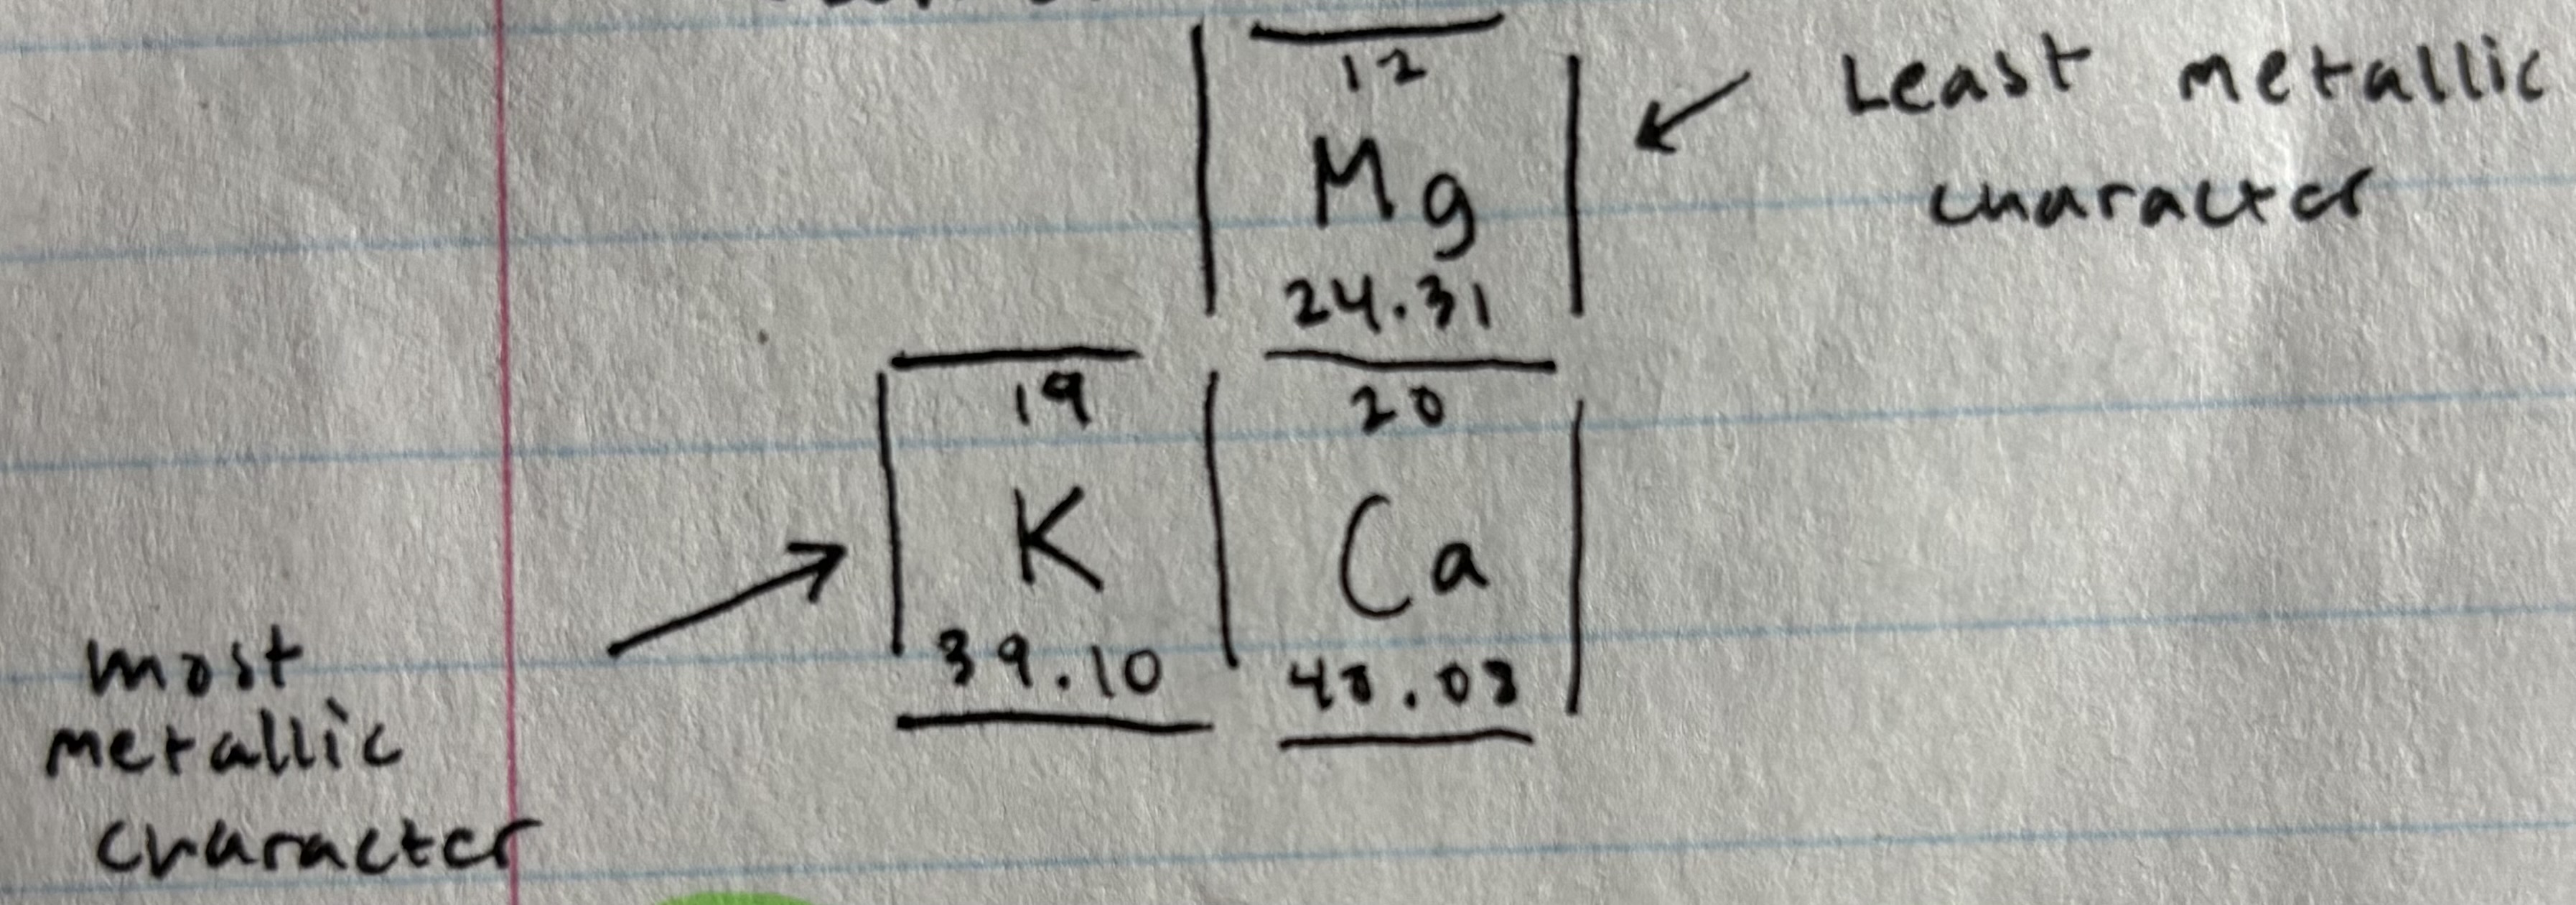 12
Least metallic
Mg
character
24.31
19
20
K
Ca
39.10
40.08
most
metallic
character